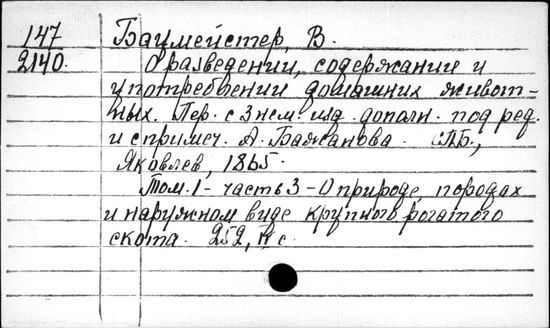 147 Баумейстер, В.
2140. О разведении, содержании и
употреблении домашних живот-
ных. Пер. с 3 нем. изд. дополн. под ред.
и с примеч. А. Бажанова. СПБ.,
Яковлев, 1865.
Том. 1 - часть 3 - О природе, породах
и наружном виде крупного рогатого
скота. 252, с.